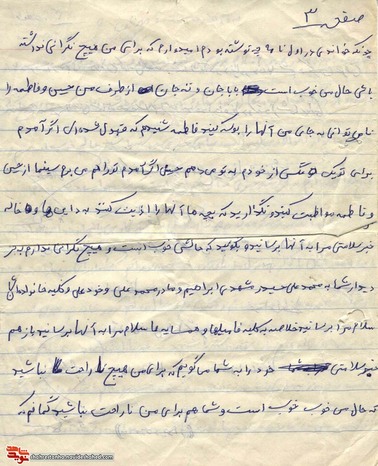 صفحه ۳
چونکه خواندی در اول نامه چه نوشته بودم امیدوارم که برای من هیچ نگرانی نداشته
باشی حال من خوب است باباجان و ننه جان از طرف من حسین و فاطمه را
به جای من آنها را بوسه کنید فاطمه شنیدم که قبول شده ای اگر آمدم
برای تو یک عکس از خودم به تو می دهم حسین اگر آمدم تو را هم می برم سینما از حسین
و فاطمه مواظبت کنید و نگذارید که بچه ها آنها را اذیت کنند به دایی و خاله
خبر سلامتی مرا به آنها برسانید و بگوئید که حالش خوب است و هیچ نگرانی ندارم به
محمد علی حیدر مشهدی ابراهیم و مادر محمد علی و خود علی و کلیه خانواده
سلام مرا برسانید خلاصه به کلیه فامیلها و همسایه ها سلام مرا به آنها برسانید باز هم
خبر سلامتی خود را به شما می گویم که برای من هیچ ناراحت نباشید
که حال من خوب خوب است و شما هم برای من ناراحت نباشید که
shohrestanha.navideshahed.com